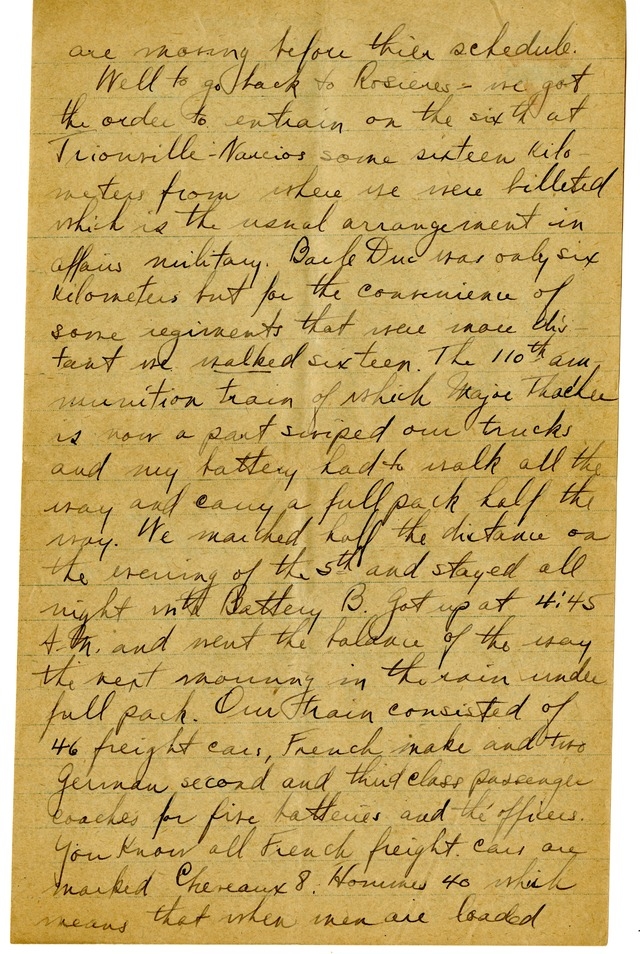 are moving before thier schedule.
Well to go back to Rosieres - we got
the order to entrain on the sixth at
Trionville-Narcios some sixteen kilo-
meters from where we were billeted
which is the usual arrangement in
affairs military. Bar le Duc was only six
kilometers but for the convenience of
some regiments that were more dis-
tant we walked sixteen. The 110th am-
munition train of which Major Thacher
is now a part swiped our trucks
and my battery had to walk all the
way and carry a full pack half the
way. We marched half the distance on
the evening of the 5th and stayed all
night with Battery B. Got up at 4:45
A.M. and went the balance of the way
the next morning in the rain under
full pack. Our train consisted of
46 freight cars, French make and two
German second and third class passenger
coaches for five batteries and the officers.
You know all French freight cars are
marked Chevaux 8. Hommes 40 which
means that when men are loaded